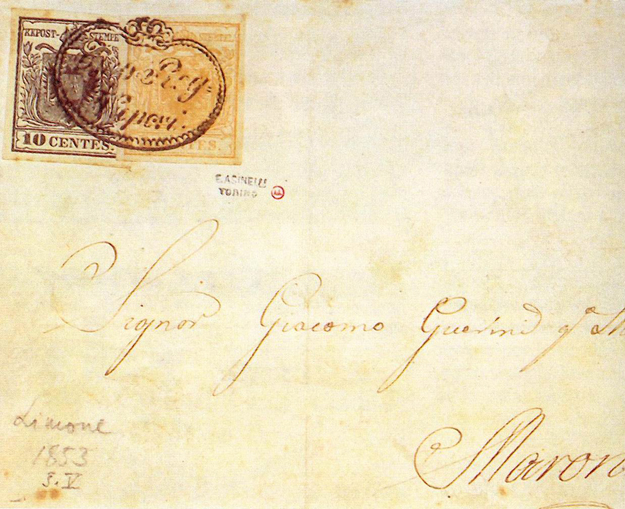 KREPOST-STEMPEL
10 CENTES.
CENTES.
E.ASINELLI
TORINO
Signor Giacomo Guerini q.m
Maron
Limone
1853
3.V